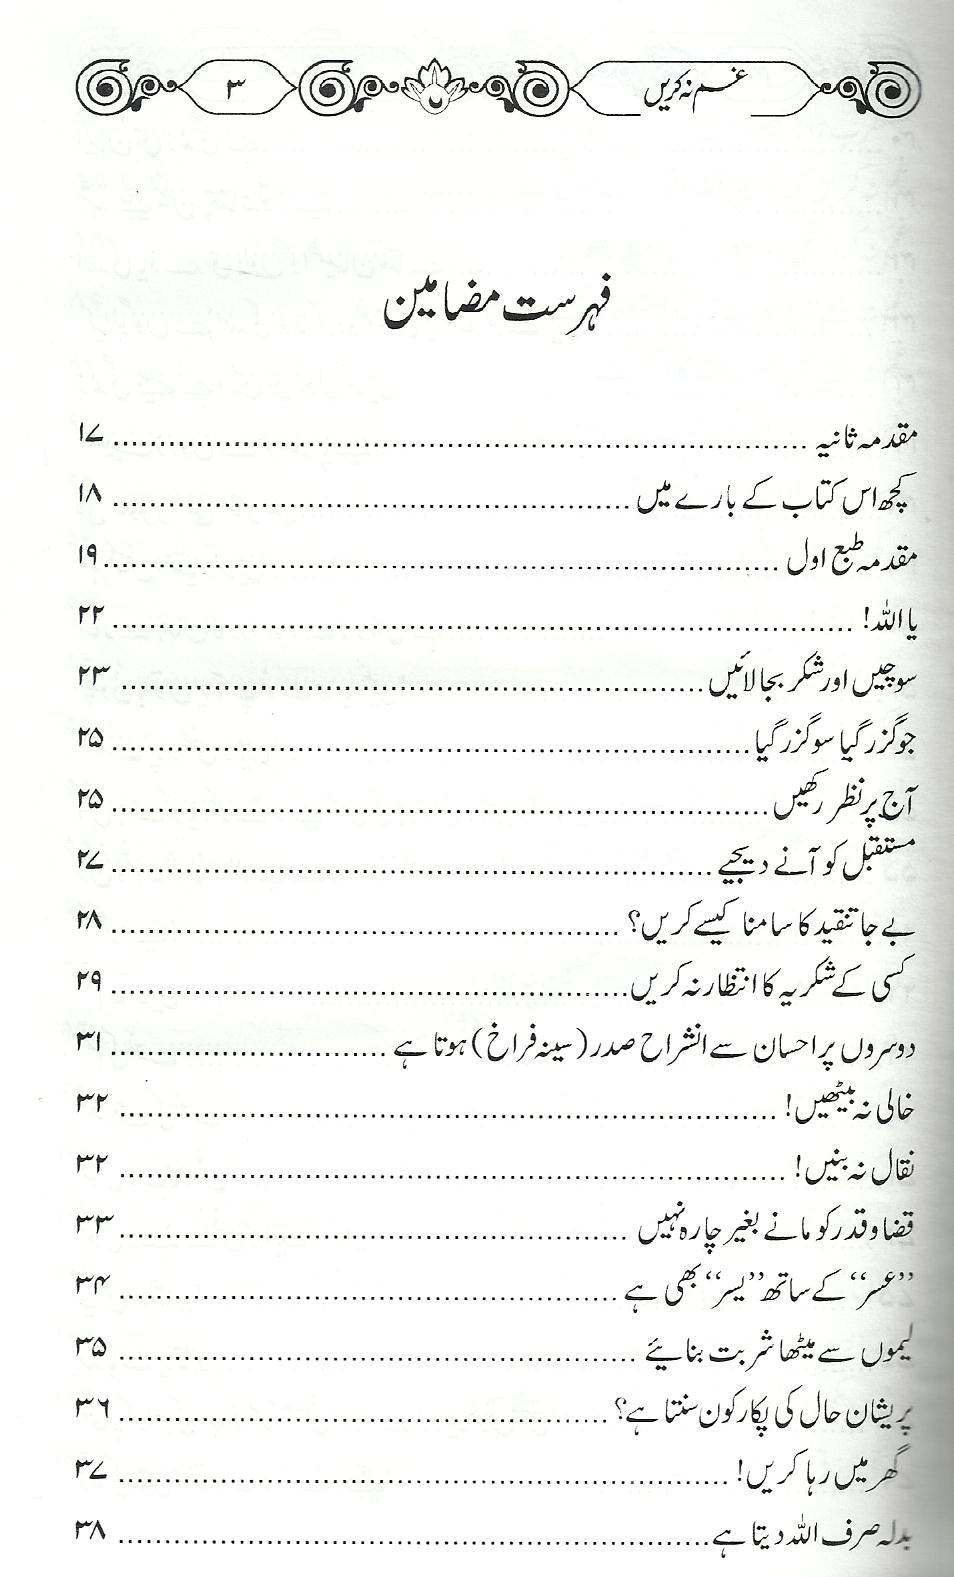 غم نہ کریں ۳
فہرست مضامین
مقدمہ ثانیہ ........ ۱۷
کچھ اس کتاب کے بارے میں ........ ۱۸
مقدمہ طبع اول ........ ۱۹
یا اللہ! ........ ۲۲
سوچیں اور شکر بجا لائیں ........ ۲۳
جو گزر گیا سو گزر گیا ........ ۲۵
آج پر نظر رکھیں ........ ۲۵
مستقبل کو آنے دیجیے ........ ۲۷
بے جا تنقید کا سامنا کیسے کریں؟ ........ ۲۸
کسی کے شکریہ کا انتظار نہ کریں ........ ۲۹
دوسروں پر احسان سے انشراح صدر (سینہ فراخ) ہوتا ہے ........ ۳۱
خالی نہ بیٹھیں! ........ ۳۲
نقال نہ بنیں! ........ ۳۲
قضا و قدر کو مانے بغیر چارہ نہیں ........ ۳۳
”عسر“ کے ساتھ ”یسر“ بھی ہے ........ ۳۴
لیموں سے میٹھا شربت بنائیے ........ ۳۵
پریشان حال کی پکار کون سنتا ہے؟ ........ ۳۶
گھر میں رہا کریں! ........ ۳۷
بدلہ صرف اللہ دیتا ہے ........ ۳۸